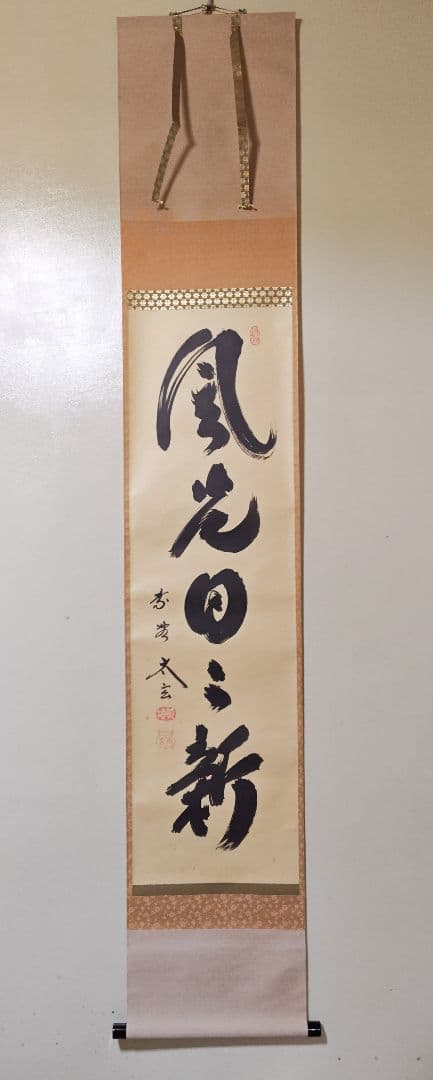 風光日々新
太玄